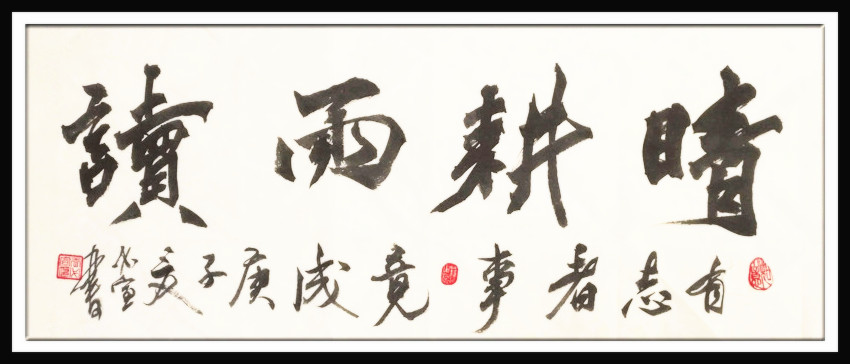 晴耕雨讀
有志者事竟成庚子夏書